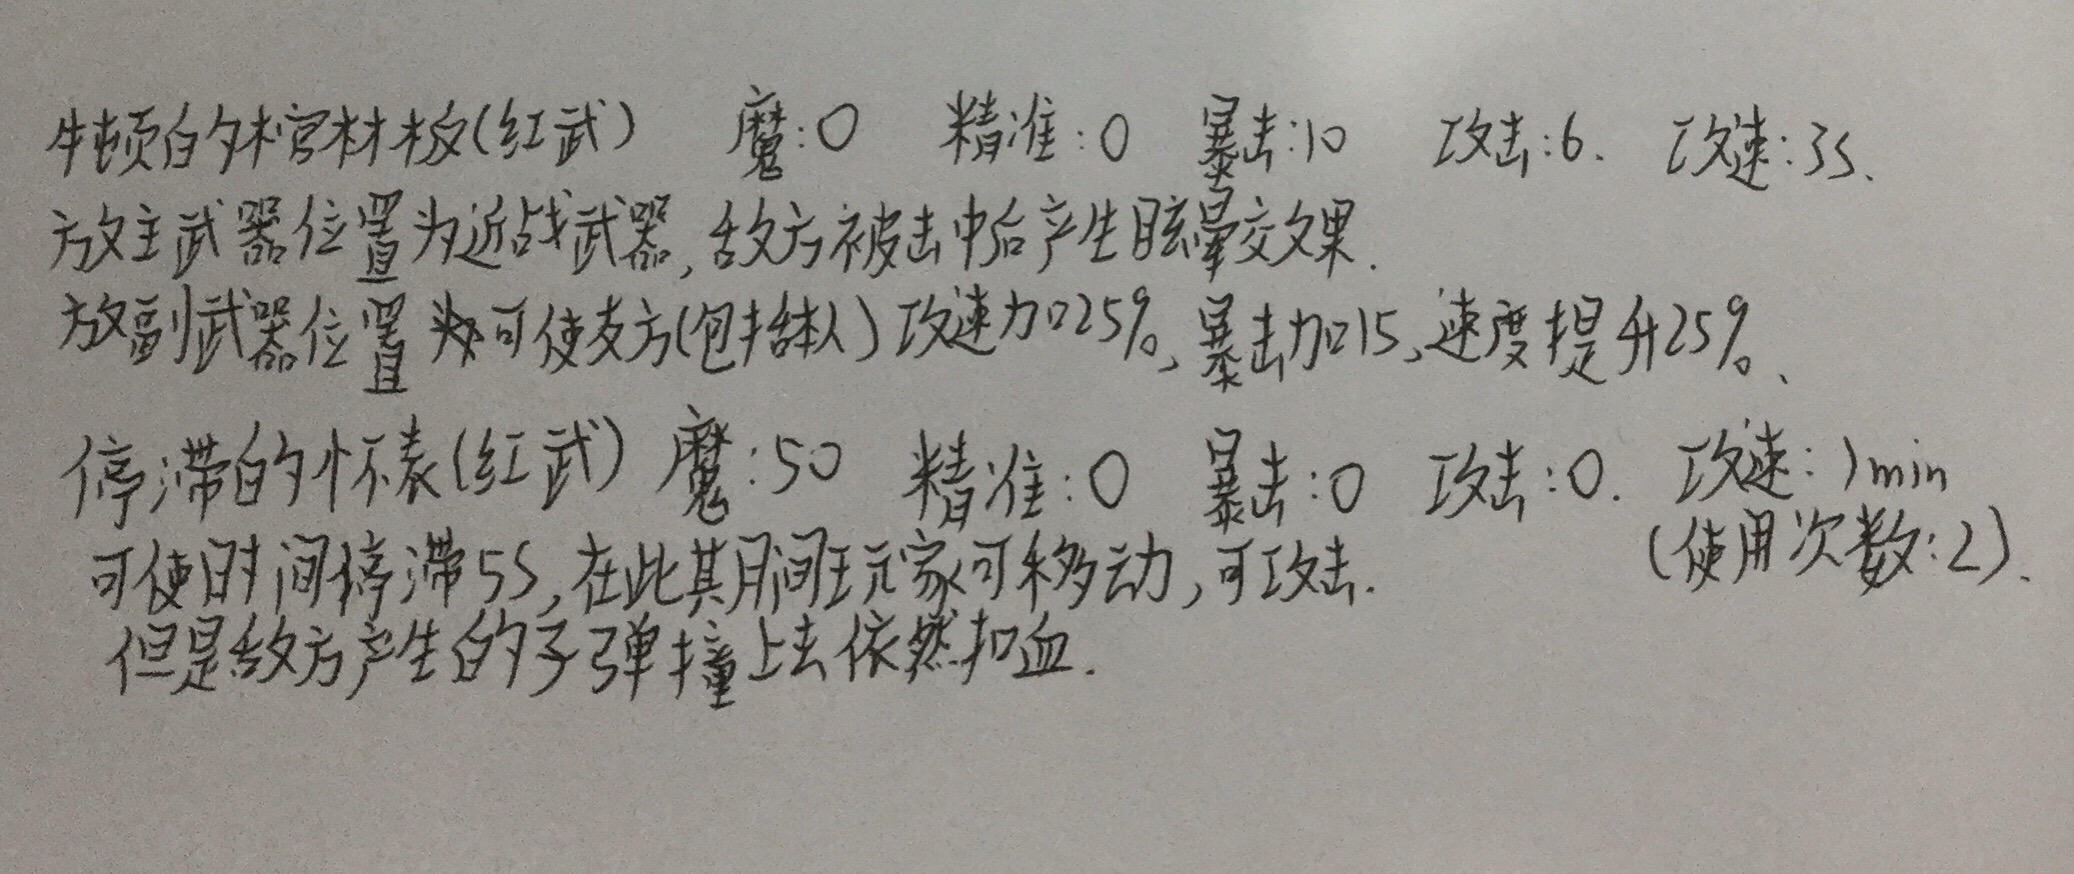 牛顿的棺材板(红武) 魔:0 精准:0 暴击:10 攻击:6. 攻速:3s.
放主武器位置为近战武器,敌方被击中后产生眩晕效果.
放副武器位置 可使友方(包括本人)攻速加25%,暴击加15,速度提升25%、
停滞的怀表(红武) 魔:50 精准:0 暴击:0 攻击:0. 攻速:1min
(使用次数:2).
可使时间停滞5S,在此期间玩家可移动,可攻击.
但是敌方产生的子弹撞上去依然扣血.